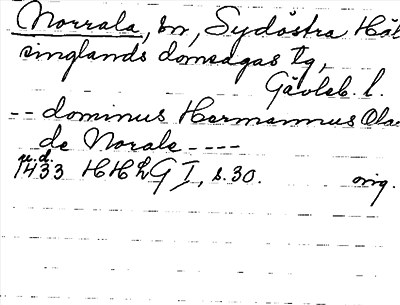 Norrala, sn, Sydöstra Häl
singlands domsagas tg,
Gävleb. l.
-- dominus Hermannus Ola
de Norale ----
u.d.
1433 HHLG I, s. 30. orig.